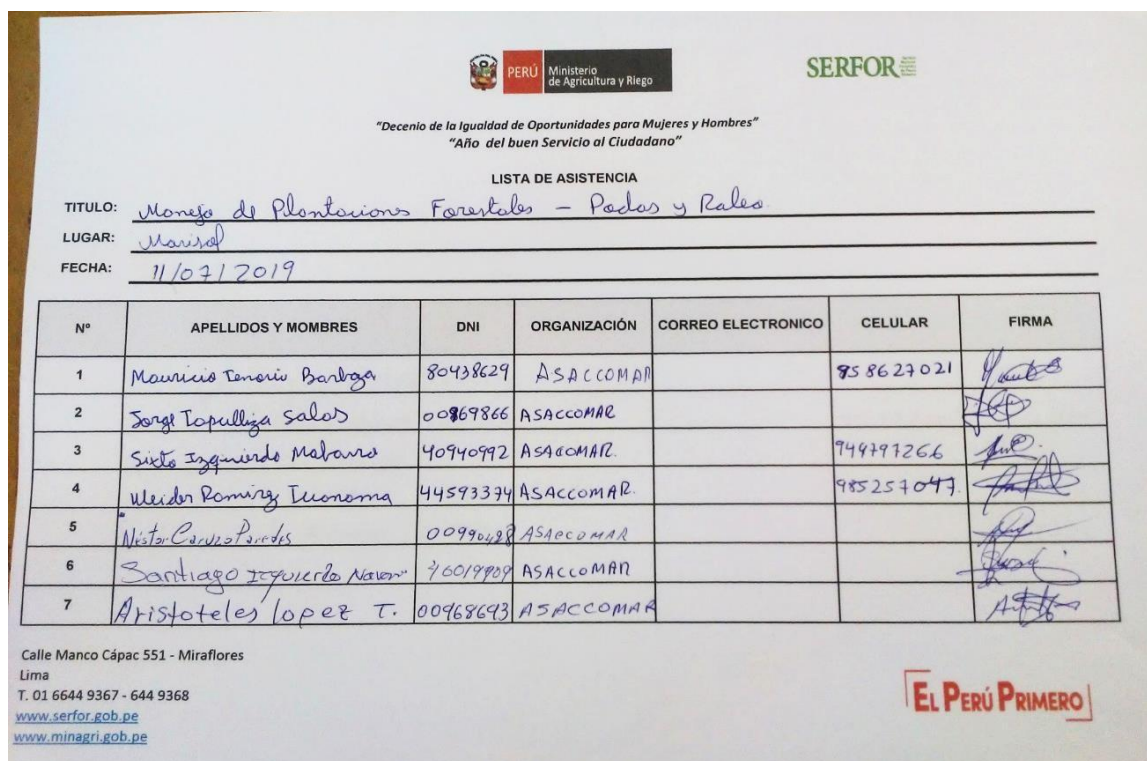 PERÚ Ministerio de Agricultura y Riego
SERFOR
"Decenio de la Igualdad de Oportunidades para Mujeres y Hombres"
"Año del buen Servicio al Ciudadano"
LISTA DE ASISTENCIA
TITULO: Manejo de Plantaciones Forestales – Podas y Raleo.
LUGAR: Marisol
FECHA: 11/07/2019
Nº APELLIDOS Y MOMBRES DNI ORGANIZACIÓN CORREO ELECTRONICO CELULAR FIRMA
1 Mauricio Tenorio Barboza 80438629 ASACCOMAR 958627021
2 Jorge Tapullima Salas 00869866 ASACCOMAR
3 Sixto Izquierdo 40940992 ASACOMAR. 949797266
4 Weider Ramirez 44593374 ASACCOMAR. 985257047.
5 Néstor Paredes ASACCOMAR
6 Santiago Izquierdo ASACCOMAR
7 Aristoteles lopez T. 00968693 ASACCOMAR
Calle Manco Cápac 551 - Miraflores
Lima
T. 01 6644 9367 - 644 9368
www.serfor.gob.pe
www.minagri.gob.pe
EL PERÚ PRIMERO